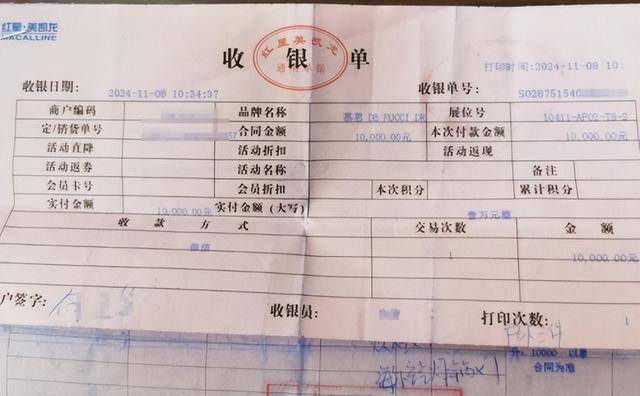 红星·美凯龙
MACALLINE
收 银 单
红星美凯龙
打印时间:2024-11-08 10:
收银日期: 2024-11-08 10:34:37 收银单号: S028751540
商户编码 品牌名称 慕思 DE RUCCI DR 展位号 10411-AF02-TB-2
定/销货单号 57 合同金额 10,000.00元 本次付款金额 10,000.00元
活动直降 活动折扣 活动返现
活动返券 活动名称 备注
会员卡号 会员折扣 本次积分 累计积分
实付金额 10,000.00元 实付金额(大写) 壹万元整
收 款 方 式 交易次数 金 额
微信 1 10,000.00元
户签字: 收银员: 打印次数: 1
分: 10000 以着
合同为准